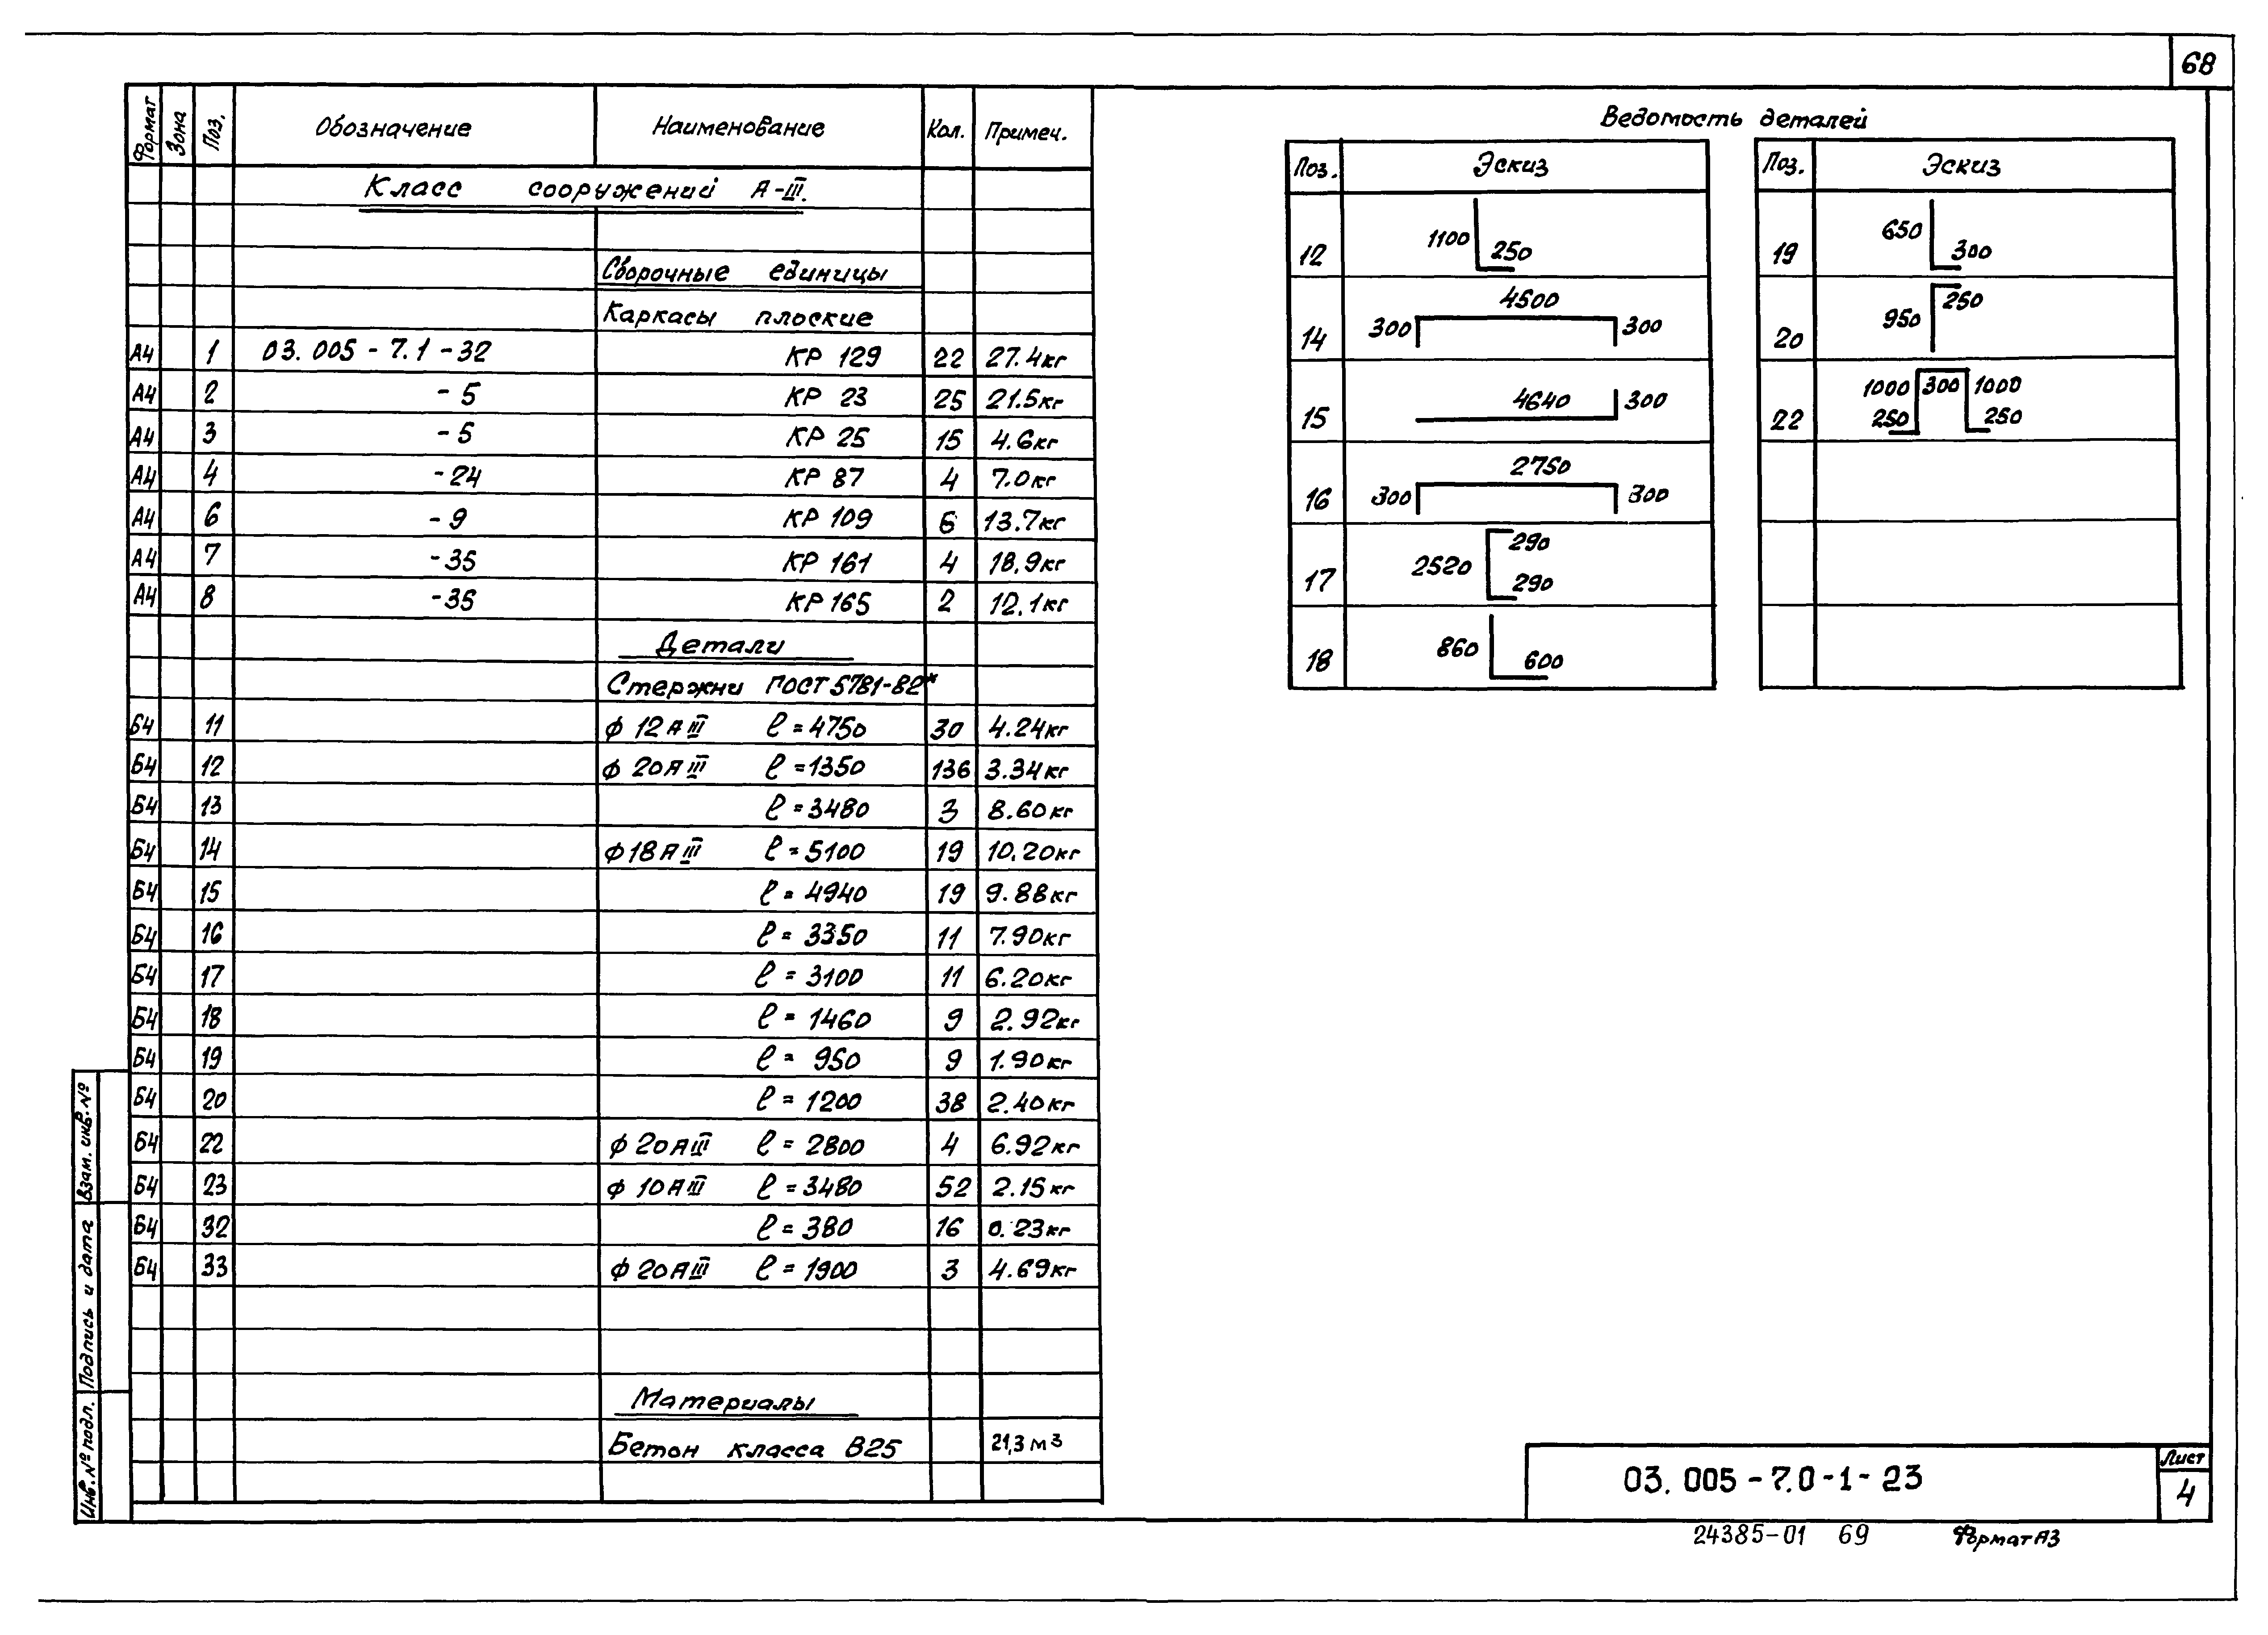 68
Формат Зона Поз. Обозначение Наименование Кол. Примеч.
Класс сооружений А-III.
Сборочные единицы
Каркасы плоские
А4 1 03.005-7.1-32 КР 129 22 27.4кг
А4 2 -5 КР 23 25 21.5кг
А4 3 -5 КР 25 15 4.6кг
А4 4 -24 КР 87 4 7.0кг
А4 6 -9 КР 109 6 13.7кг
А4 7 -35 КР 161 4 18.9кг
А4 8 -35 КР 165 2 12.1кг
Детали
Стержни ГОСТ 5781-82*
Б4 11 ф 12АIII ℓ=4750 30 4.24кг
Б4 12 ф 20АIII ℓ=1350 136 3.34кг
Б4 13 ℓ=3480 3 8.60кг
Б4 14 ф18АIII ℓ=5100 19 10.20кг
Б4 15 ℓ=4940 19 9.88кг
Б4 16 ℓ=3350 11 7.90кг
Б4 17 ℓ=3100 11 6.20кг
Б4 18 ℓ=1460 9 2.92кг
Б4 19 ℓ=950 9 1.90кг
Б4 20 ℓ=1200 38 2.40кг
Б4 22 ф 20АIII ℓ=2800 4 6.92кг
Б4 23 ф 10АIII ℓ=3480 52 2.15кг
Б4 32 ℓ=380 16 0.23кг
Б4 33 ф 20АIII ℓ=1900 3 4.69кг
Материалы
Бетон класса В25 21,3 м3
Ведомость деталей
Поз. Эскиз
12 1100 250
14 300 4500 300
15 4640 300
16 300 2750 300
17 2520 290 290
18 860 600
Поз. Эскиз
19 650 300
20 950 250
22 1000 300 1000 250 250
Взам. инв. №
Подпись и дата
Инв. № подл.
03.005-7.0-1-23
Лист
4
24385-01 69 Формат А3